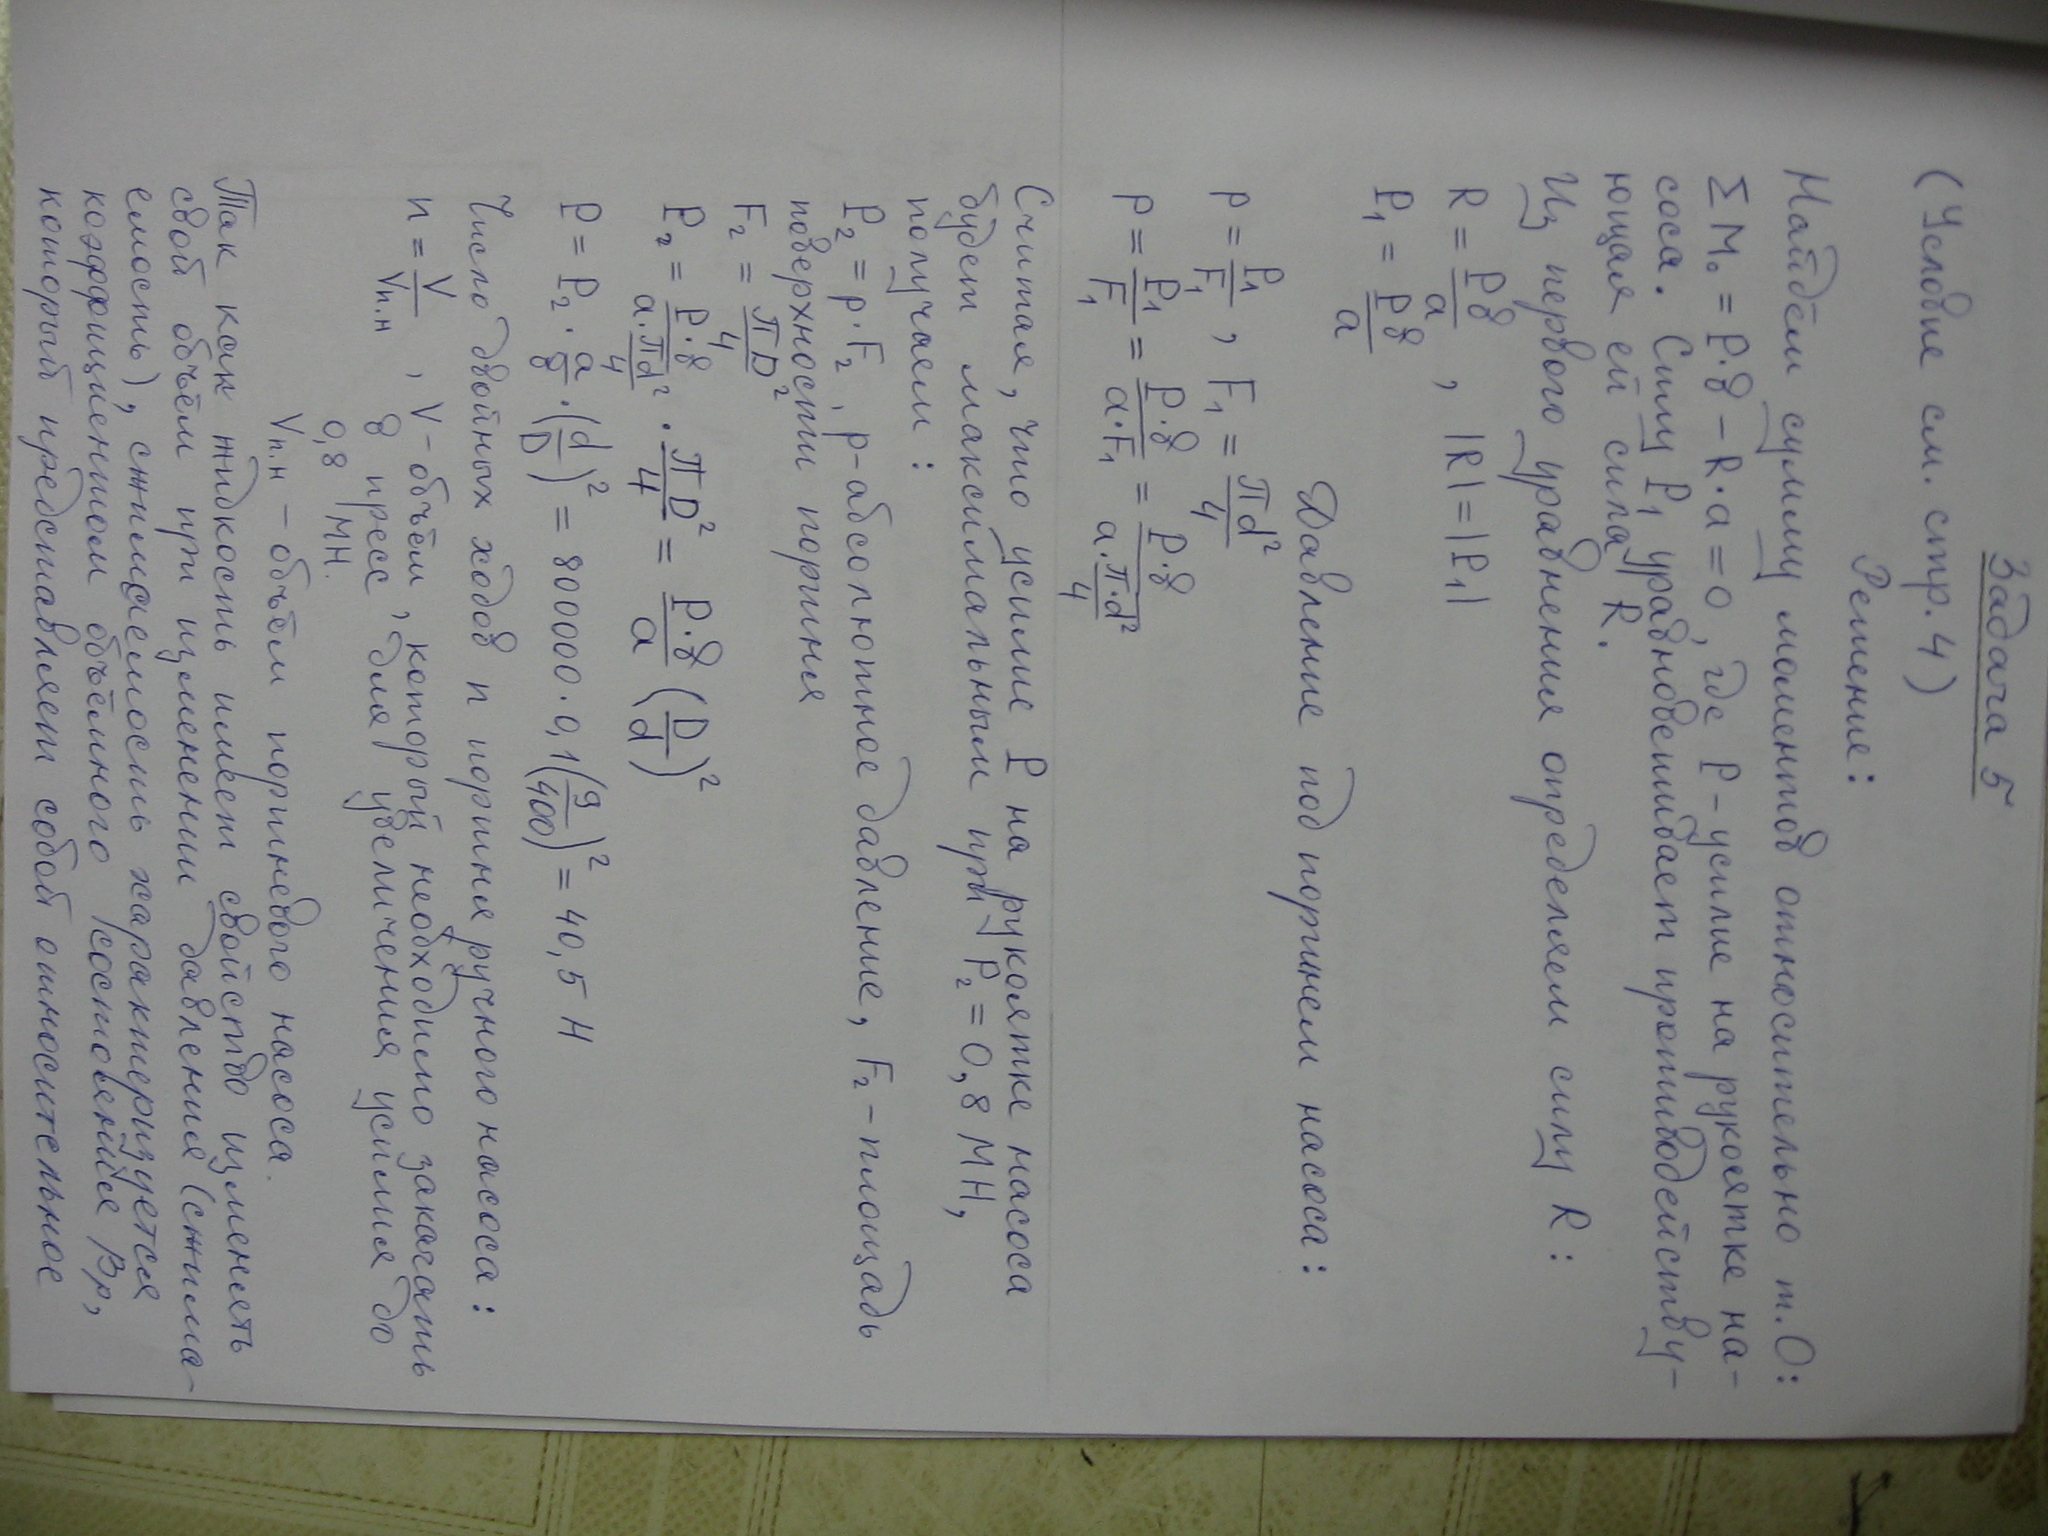 Задача 5
(Условие см. стр. 4)
Решение:
Найдём сумму моментов относительно т.О:
ΣM₀ = P·в − R·a = 0, где P – усилие на рукоятке на-
соса. Силу P₁ уравновешивает противодейству-
ющая ей сила R.
Из первого уравнения определяем силу R:
R = Pв/a, |R| = |P₁|
P₁ = Pв/a
Давление под поршнем насоса:
p = P₁/F₁, F₁ = πd²/4
p = P₁/F₁ = P·в/(a·F₁) = P·в/(a·π·d²/4)
Считая, что усилие P на рукоятке насоса
будет максимальным при P₂ = 0,8 МН,
получаем:
P₂ = p·F₂, p – абсолютное давление, F₂ – площадь
поверхности поршня
F₂ = πD²/4
P₂ = P·в/(a·πd²/4) · πD²/4 = P·в/a (D/d)²
P = P₂ · a/в · (d/D)² = 800000 · 0,1(9/400)² = 40,5 Н
Число двойных ходов n поршня ручного насоса:
n = V/Vп.н , V – объём, который необходимо закачать
в пресс для увеличения усилия до
0,8 МН.
Vп.н – объём поршневого насоса.
Так как жидкость имеет свойство изменять
свой объём при изменении давления (сжима-
емость), сжимаемость характеризуется
коэффициентом объёмного соотношения βр,
который представляет собой относительное